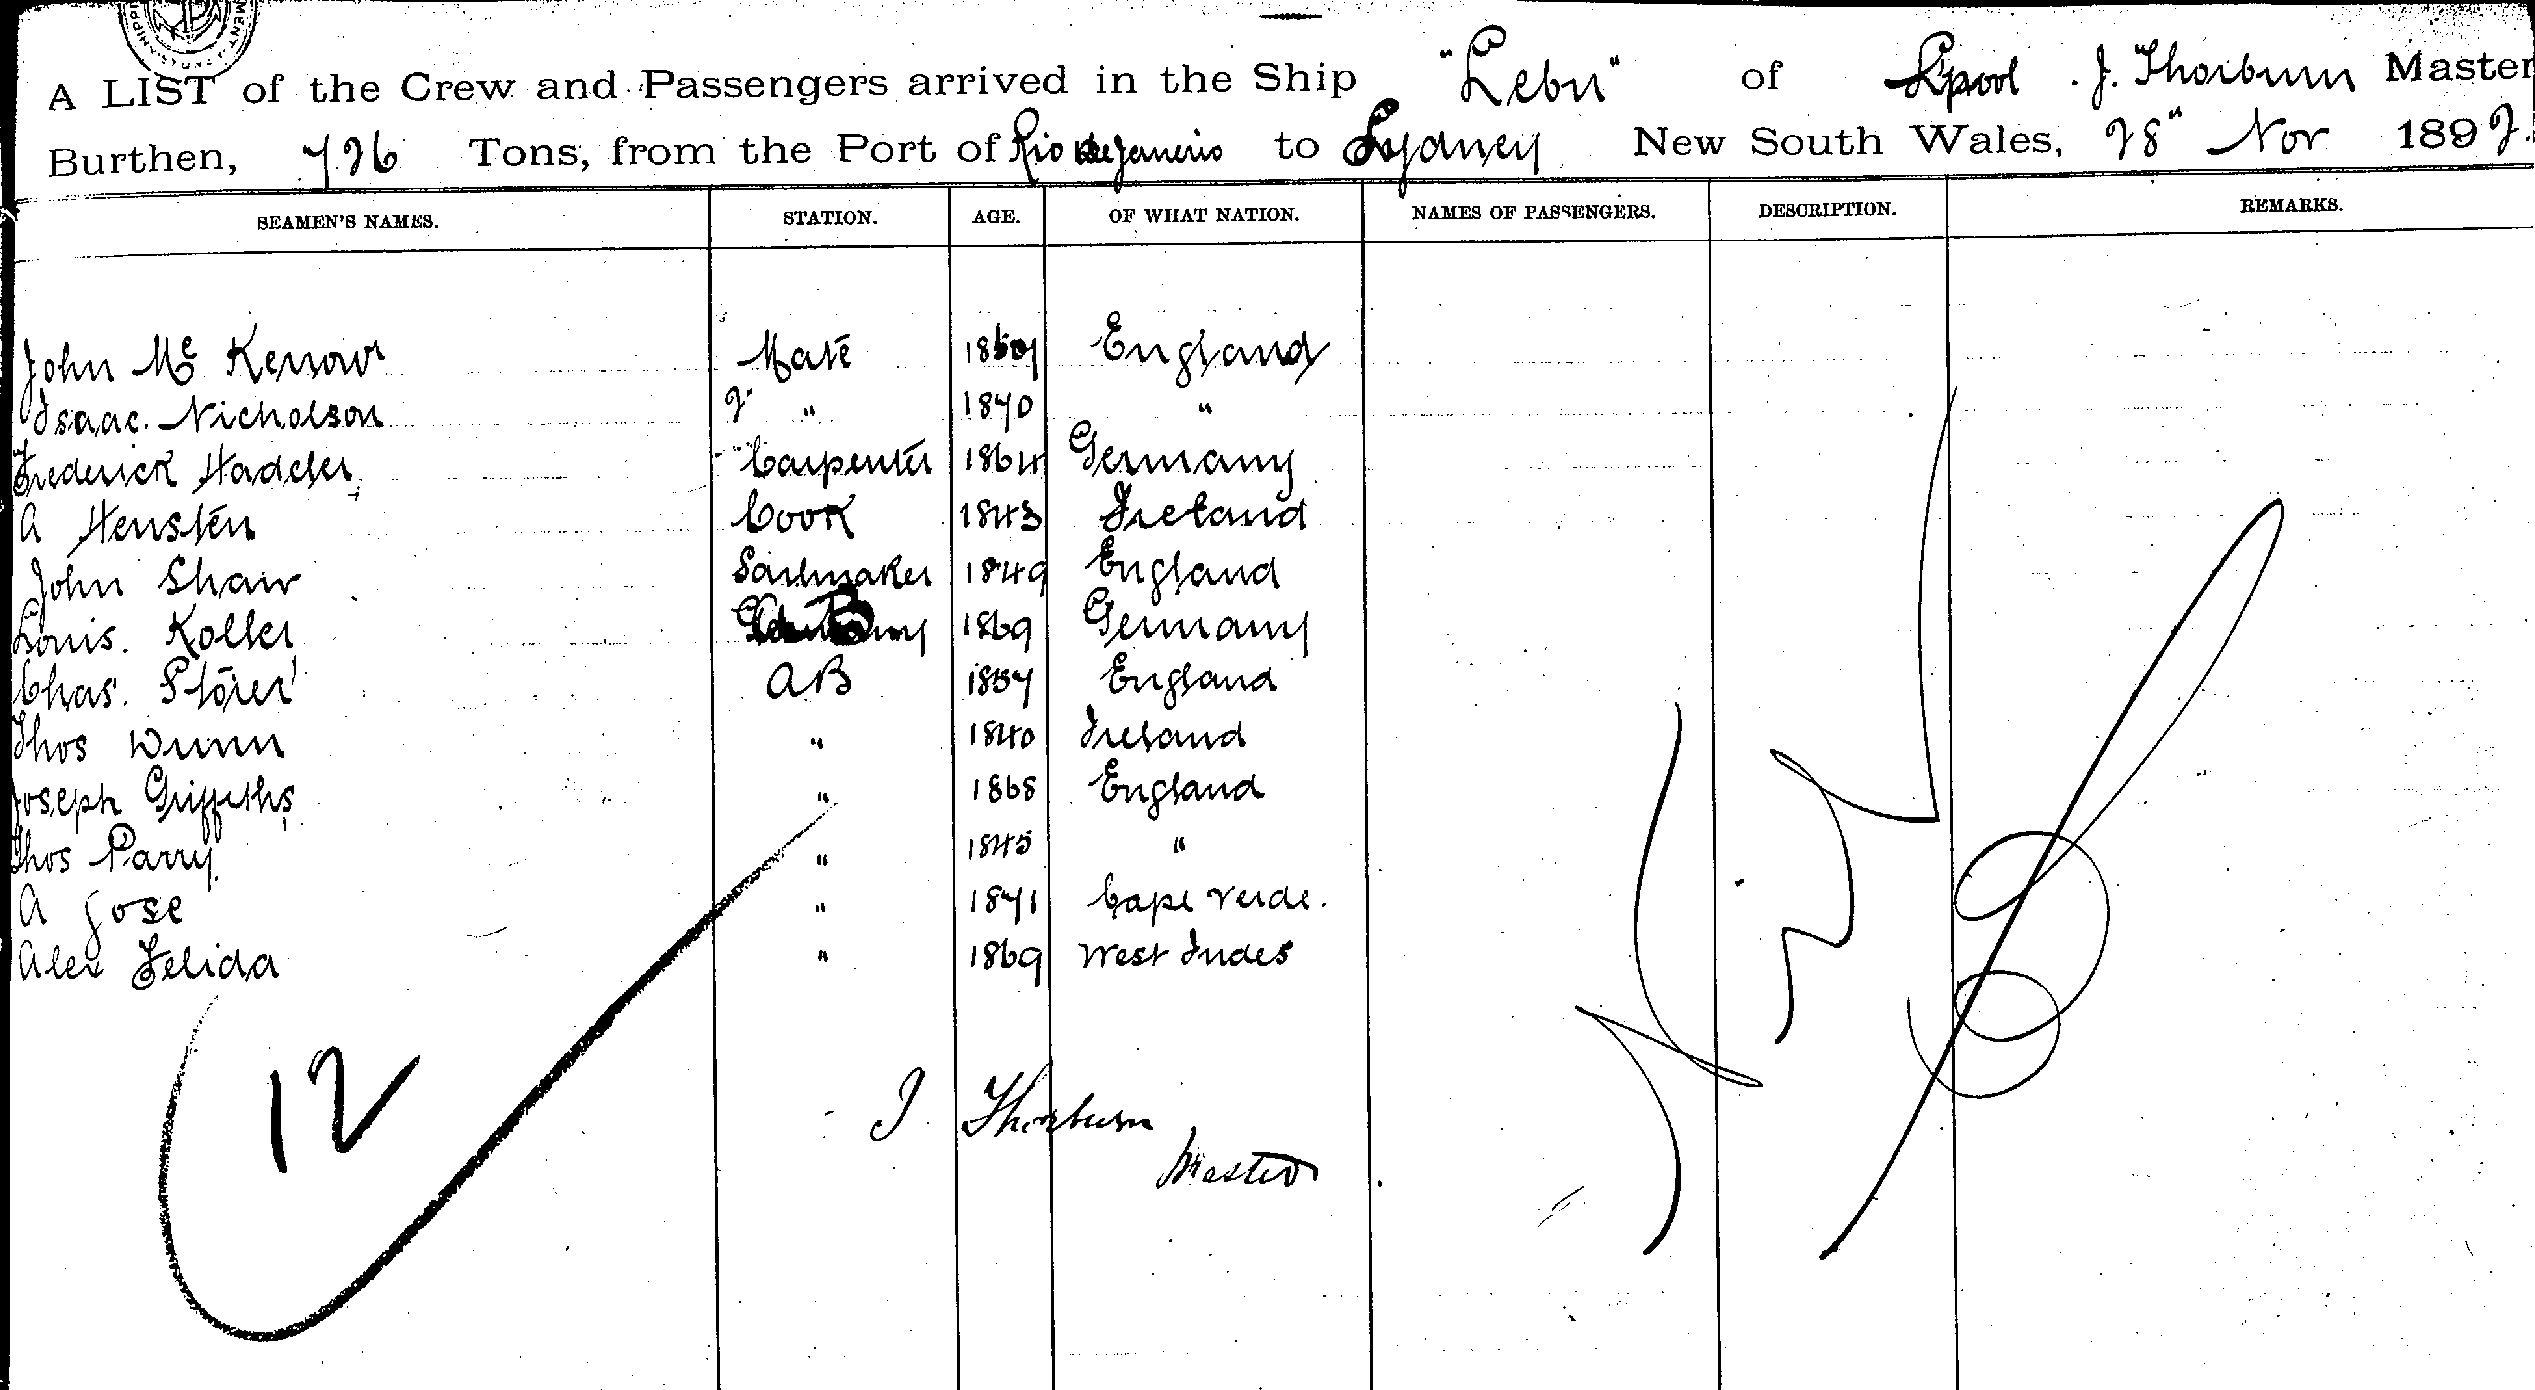 A LIST of the Crew and Passengers arrived in the Ship "Lebu" of Lpool J. Thorburn Master
Burthen, 726 Tons, from the Port of Rio de Janerio to Sydney New South Wales, 28" Nov 1892.
SEAMEN'S NAMES. STATION. AGE. OF WHAT NATION. NAMES OF PASSENGERS. DESCRIPTION. REMARKS.
John Mc Kerrow Mate England
Isaac. Nicholson 2 " 1870 "
Frederick Hadeler Carpenter 1864 Germany
A Hensten Cook 1843 Ireland
John Shaw Sailmaker 1849 England
Louis. Koller 1869 Germany
Chas. Storer AB 1857 England
Thos Dunn " 1840 Ireland
Joseph Griffiths " 1868 England
Thos Parry " 1845 "
A Jose " 1871 Cape Verde.
Alex Felida " 1869 West Indes
12
J Thorburn
Master
Nil